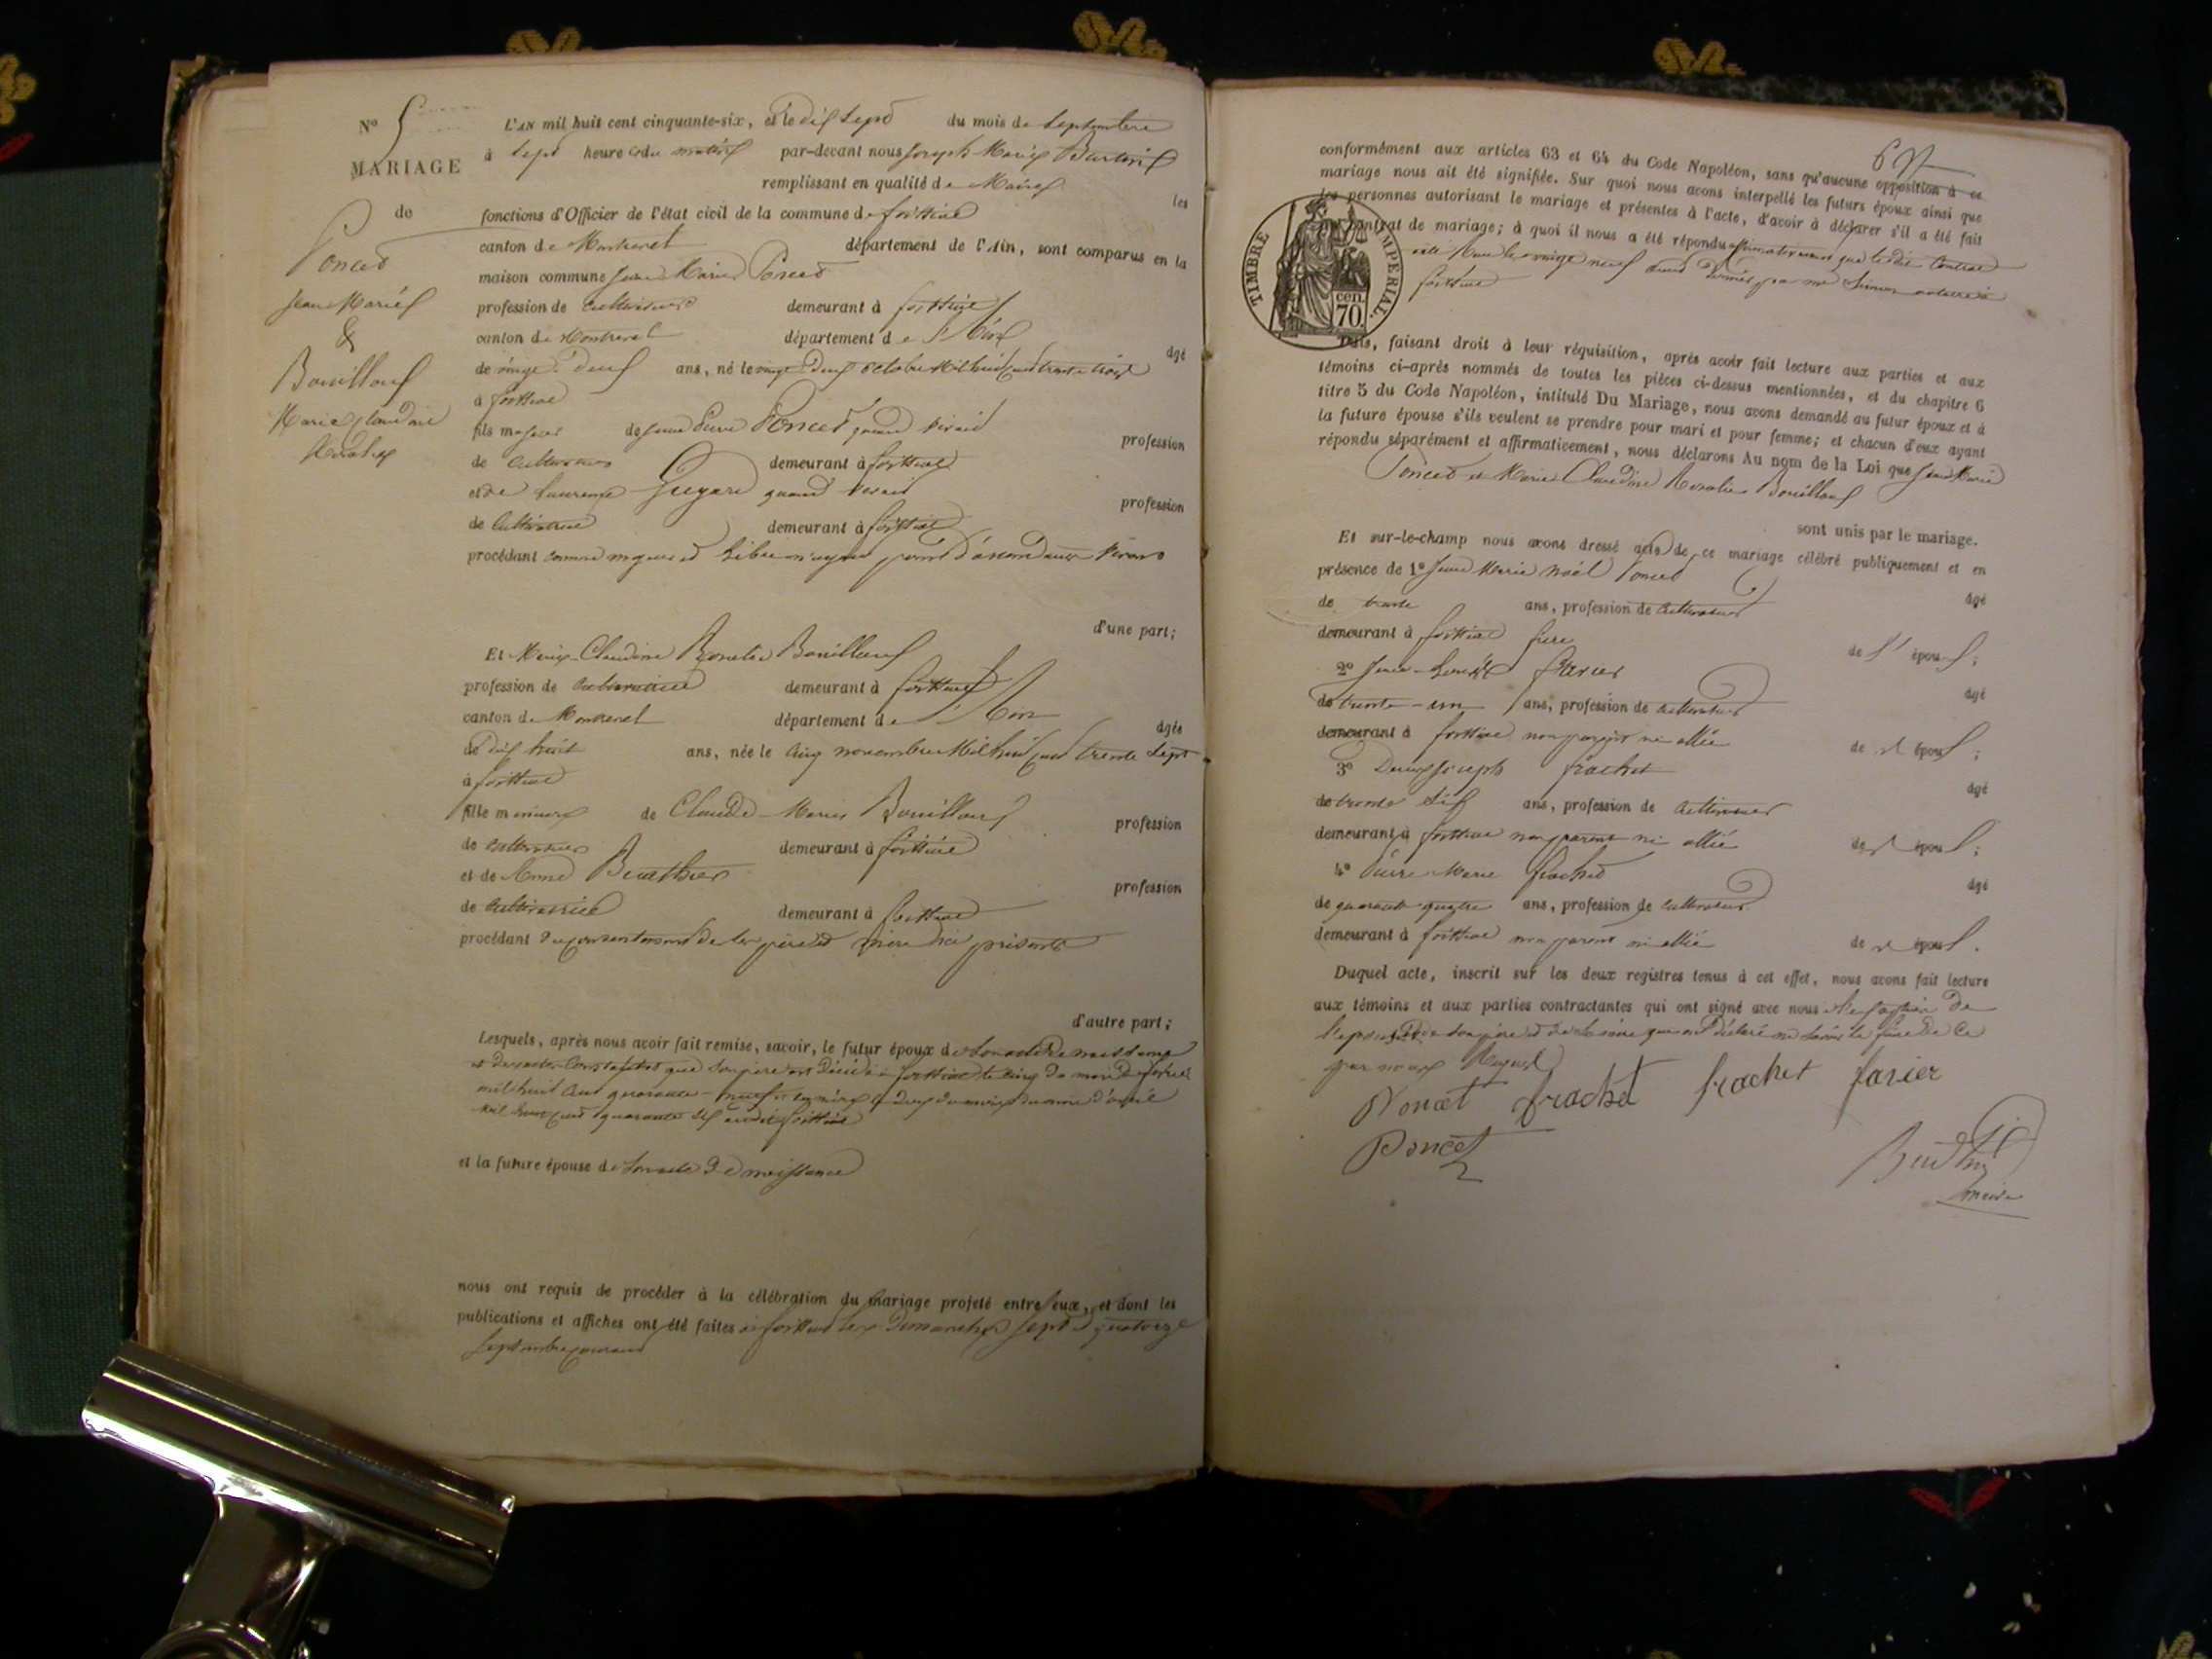 N° 5
MARIAGE
de
Poncet
Jean Marie
&
Bouilloux
Marie Claudine
Rosalie
L'AN mil huit cent cinquante-six, et le dix sept du mois de Septembre
à sept heures du matin par-devant nous Joseph Marie
remplissant en qualité de Maire les
fonctions d'Officier de l'état civil de la commune de foissiat
canton de Montrevel département de l'Ain, sont comparus en la
maison commune Jean Marie Poncet
profession de cultivateur demeurant à foissiat
canton de Montrevel département de l'Ain âgé
de vingt deux ans, né le vingt deux octobre mil huit cent trente trois
à foissiat
fils majeur de Jean Pierre Poncet quand vivait profession
de cultivateur demeurant à foissiat
et de Laurence quand vivait profession
de cultivatrice demeurant à foissiat
procédant comme majeur et libre n'ayant point d'ascendants vivans
d'une part;
Et Marie Claudine Rosalie Bouilloux
profession de cultivatrice demeurant à foissiat
canton de Montrevel département de l'Ain âgée
de dix huit ans, née le cinq novembre mil huit cent trente sept
à foissiat
fille mineure de Claude Marie Bouilloux profession
de cultivateur demeurant à foissiat
et de profession
de cultivatrice demeurant à foissiat
procédant du consentement de ses père et mère ici présents
d'autre part;
Lesquels, après nous avoir fait remise, savoir, le futur époux de son acte de naissance
et des actes constatant que son père est décédé à foissiat le cinq du mois de
mil huit cent quarante-neuf et sa mère le deux du mois d'avril
mil huit cent quarante six audit foissiat
et la future épouse de son acte de naissance
nous ont requis de procéder à la célébration du mariage projeté entre eux, et dont les
publications et affiches ont été faites à foissiat les dimanches sept et quatorze
septembre courant
conformément aux articles 63 et 64 du Code Napoléon, sans qu'aucune opposition à ce
mariage nous ait été signifiée. Sur quoi nous avons interpellé les futurs époux ainsi que
les personnes autorisant le mariage et présentes à l'acte, d'avoir à déclarer s'il a été fait
un contrat de mariage; à quoi il nous a été répondu affirmativement que ledit contrat
a été reçu le vingt neuf août dernier par me notaire à
foissiat
TIMBRE IMPERIAL.
cen. 70
Puis, faisant droit à leur réquisition, après avoir fait lecture aux parties et aux
témoins ci-après nommés de toutes les pièces ci-dessus mentionnées, et du chapitre 6
titre 5 du Code Napoléon, intitulé Du Mariage, nous avons demandé au futur époux et à
la future épouse s'ils veulent se prendre pour mari et pour femme; et chacun d'eux ayant
répondu séparément et affirmativement, nous déclarons Au nom de la Loi que Jean Marie
Poncet et Marie Claudine Rosalie Bouilloux
sont unis par le mariage.
Et sur-le-champ nous avons dressé acte de ce mariage célébré publiquement et en
présence de 1° Jean Marie Noël Poncet âgé
de trente ans, profession de cultivateur
demeurant à foissiat frère de l'époux;
2° Jean favier âgé
de trente-un ans, profession de cultivateur
demeurant à foissiat non parent ni allié de l'époux;
3° Denis Joseph frachet âgé
de trente six ans, profession de cultivateur
demeurant à foissiat non parent ni allié de l'époux;
4° Pierre Marie frachet âgé
de quarante quatre ans, profession de cultivateur
demeurant à foissiat non parent ni allié de l'époux.
Duquel acte, inscrit sur les deux registres tenus à cet effet, nous avons fait lecture
aux témoins et aux parties contractantes qui ont signé avec nous
l'épouse de son père et de sa mère qui ont déclaré ne savoir le faire de ce
par nous requis
Poncet frachet frachet favier
Poncet
maire